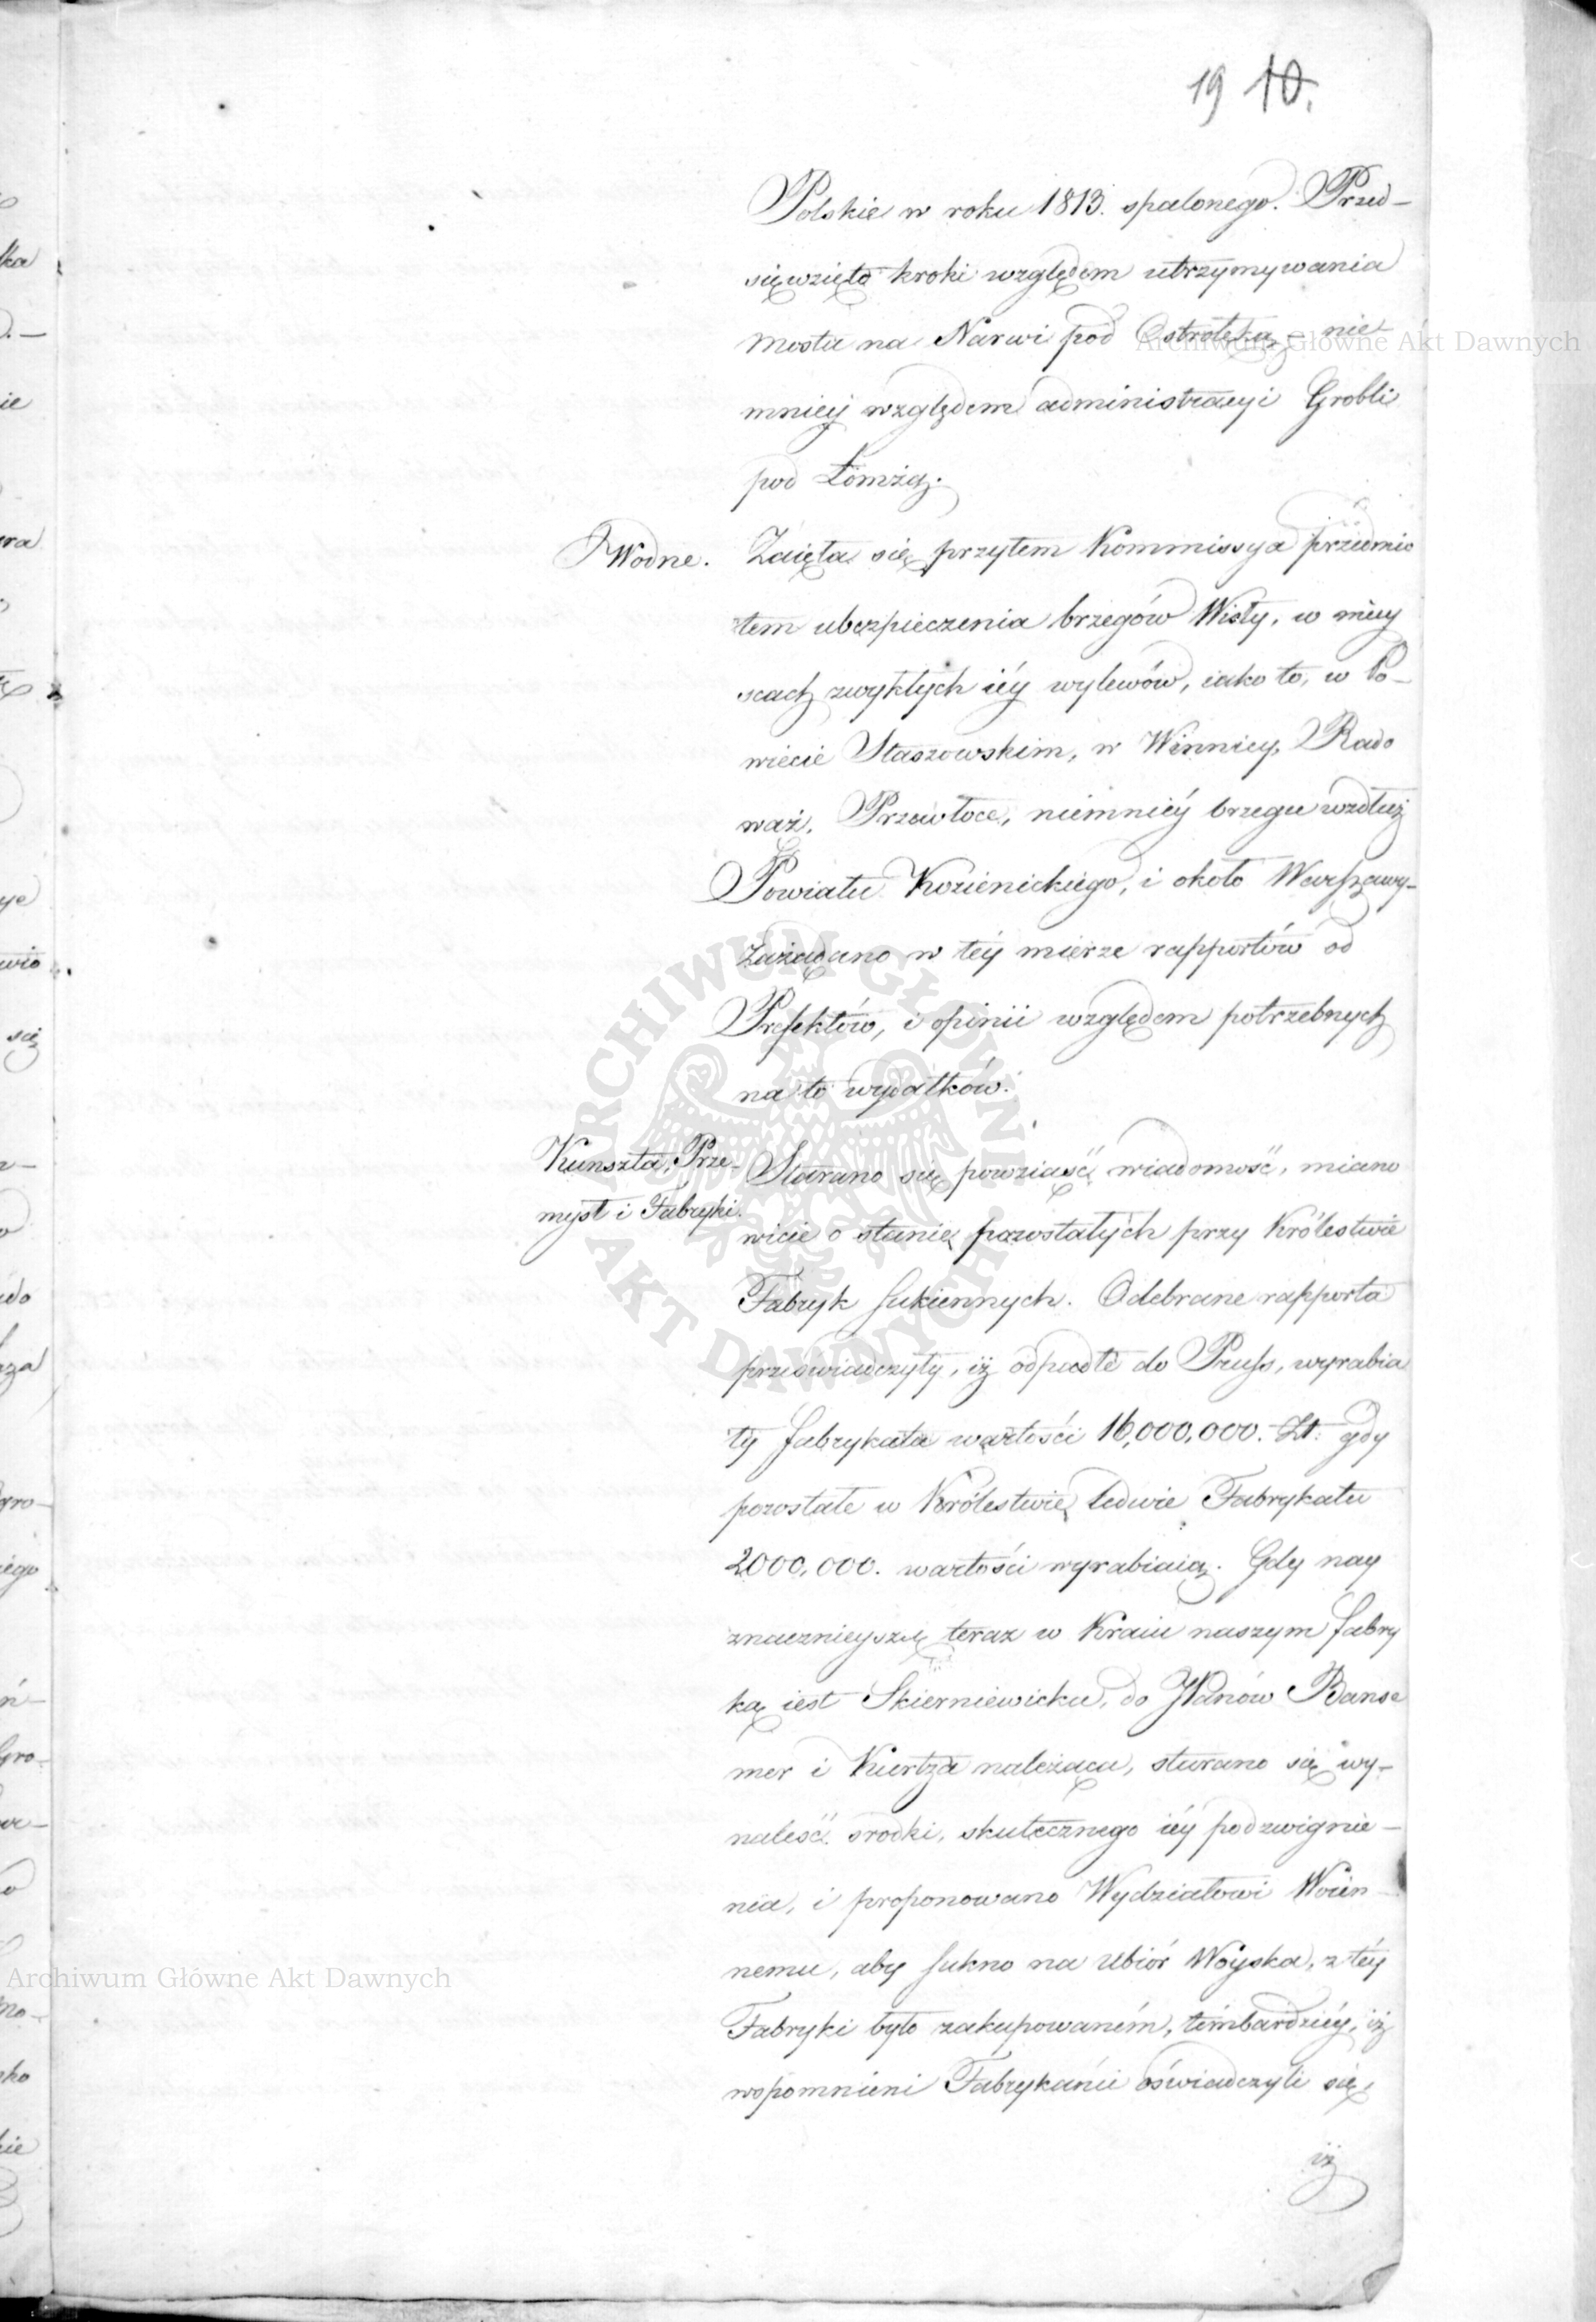 19 10.
Polskie w roku 1813. spalonego. Przed-
sięwzięto kroki względem utrzymywania
mostu na Narwi pod Ostrołęką, – nie
mniey względem administracyi Grobli
pod Łomżą.
Wodne.
Zaięła się przytem Kommissya przedmio
tem ubezpieczenia brzegów Wisły, w miey
scach zwykłych iéy wylewów, iako to, w Po-
wiecie Staszowskim, w Winnicy, Rado
waż, Przewłoce, niemniéy brzegu wzdłuż
Powiatu Kozienickiego, i około Warszawy-
Zażądano w téy mierze rapportów od
Prefektów, i opinii względem potrzebnych
na to wydatków.
Kunszta, Prze-
mysł i Fabryki.
Starano się powziąść wiadomość, miano
wicie o stanie pozostałych przy Królestwie
Fabryk sukiennych. Odebrane rapporta
przeświadczyły, iż odpadłe do Pruss, wyrabia
ły fabrykata wartości 16,000,000. Zł. gdy
pozostałe w Królestwie, ledwie Fabrykatu
2000,000. wartości wyrabiaią. Gdy nay
znacznieyszą teraz w Kraiu naszym fabry
ką iest Skierniewicka, do JPanów Banse
mer i Kurtza należąca, starano się wy-
naleść srodki, skutecznego iéy podzwignie-
nia, i proponowano Wydziałowi Woien-
nemu, aby sukno na Ubiór Woyska, z téy
Fabryki było zakupowaném, témbardziéy, iż
wspomnieni Fabrykańci oświadczyli się,
iż
ka
ie
ra
ye
wio
się
do
gro-
iego
Gro-
ko
kie
Archiwum Główne Akt Dawnych
Archiwum Główne Akt Dawnych
ARCHIWUM GŁÓWNE AKT DAWNYCH